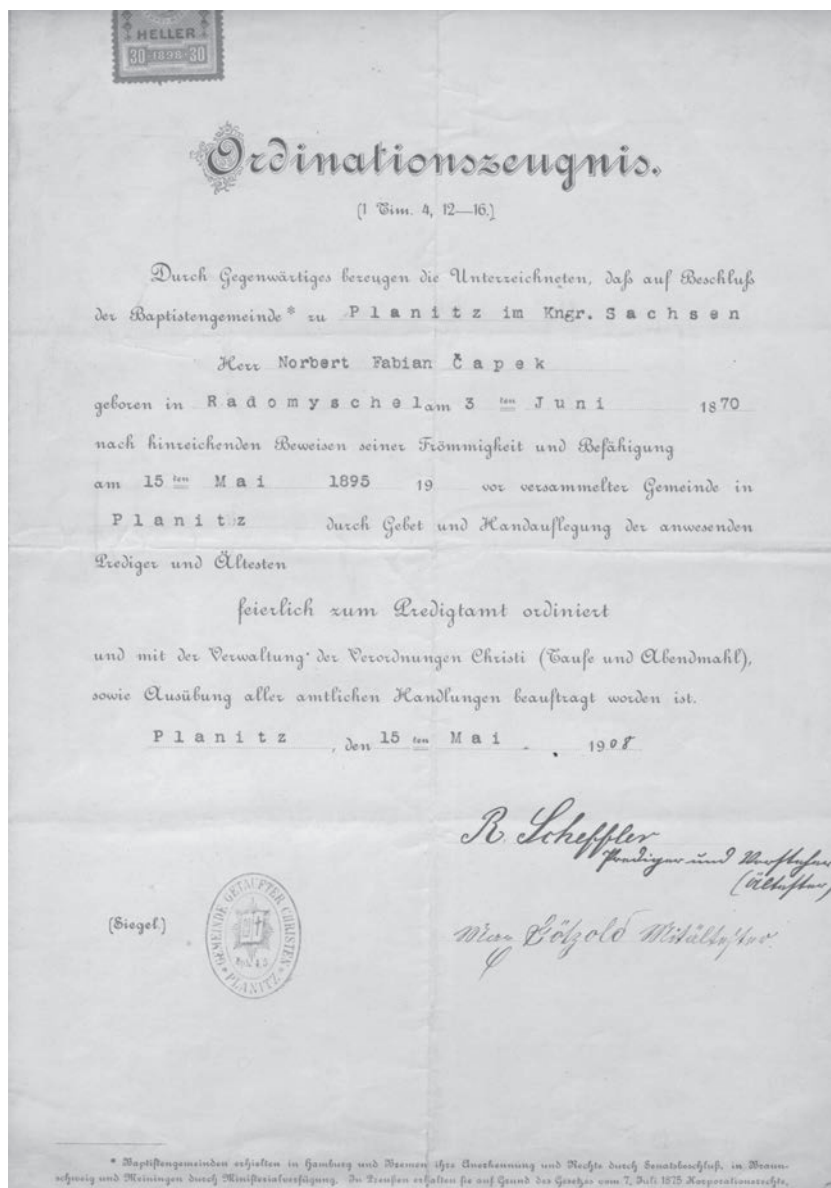 HELLER
30 · 1898 · 30
Ordinationszeugnis.
(1 Tim. 4, 12—16.)
Durch Gegenwärtiges bezeugen die Unterzeichneten, daß auf Beschluß
der Baptistengemeinde* zu Planitz im Kngr. Sachsen
Herr Norbert Fabian Čapek
geboren in Radomyschel am 3 ten Juni 1870
nach hinreichenden Beweisen seiner Frömmigkeit und Befähigung
am 15 ten Mai 1895 19 vor versammelter Gemeinde in
Planitz durch Gebet und Handauflegung der anwesenden
Prediger und Ältesten
feierlich zum Predigtamt ordiniert
und mit der Verwaltung der Verordnungen Christi (Taufe und Abendmahl),
sowie Ausübung aller amtlichen Handlungen beauftragt worden ist.
Planitz, den 15 ten Mai 1908
R. Scheffler
Prediger und Vorsteher
(Ältester)
(Siegel.)
GEMEINDE GETAUFTER CHRISTEN
PLANITZ
Mitältester.
* Baptistengemeinden erhielten in Hamburg und Bremen ihre Anerkennung und Rechte durch Senatsbeschluß, in Braun-
schweig und Meiningen durch Ministerialverfügung. In Preußen erhalten sie auf Grund des Gesetzes vom 7. Juli 1875 Korporationsrechte.